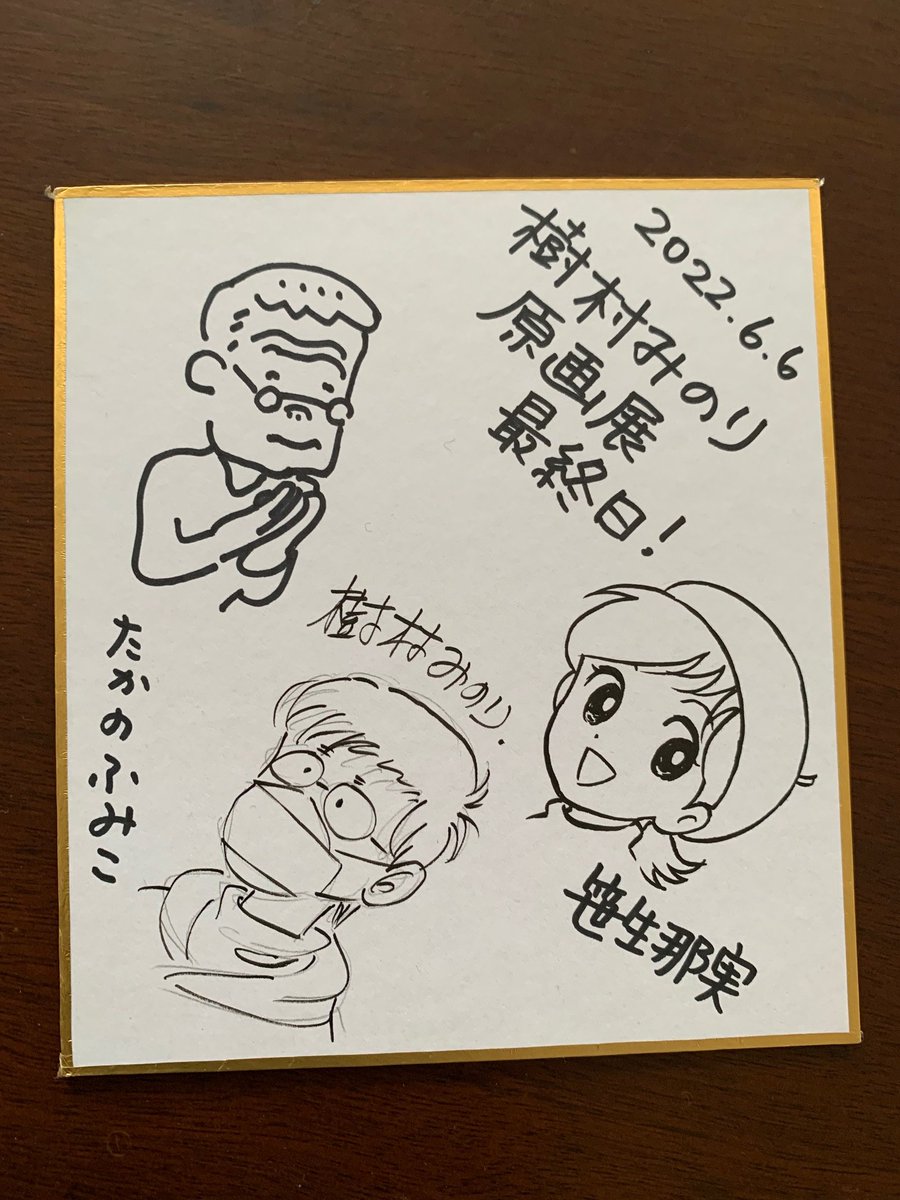 2022.6.6
樹村みのり
原画展
最終日!
樹村みのり.
たかのふみこ
笹生那実